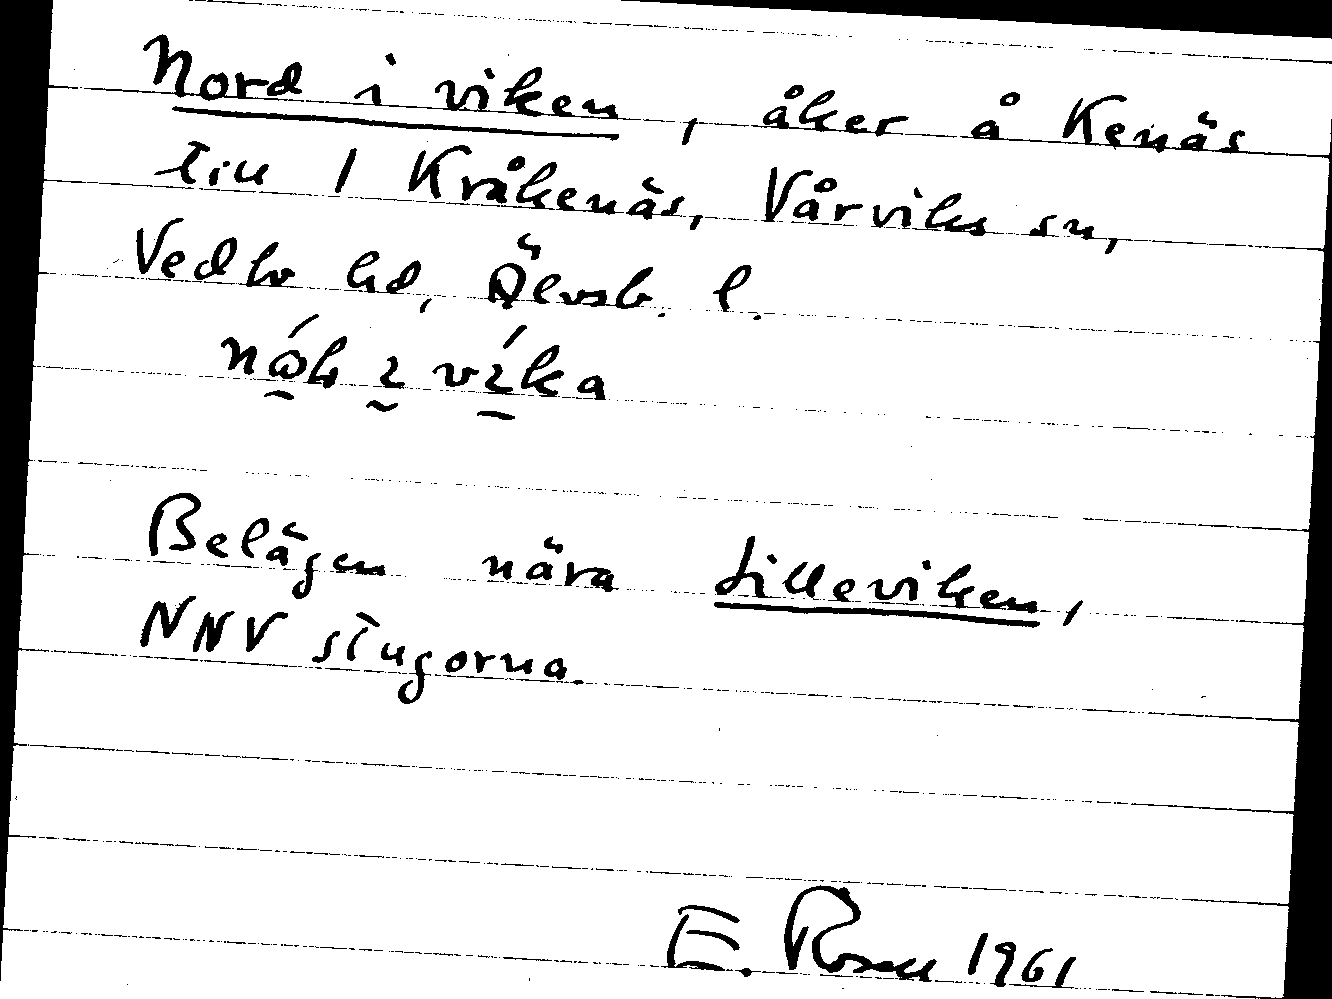 Nord i viken, åker å Kenäs
till 1 Kråkenäs, Vårviks sn,
Vedbo hd, Älvsb. l.
Belägen nära Lilleviken,
NNV stugorna.
E. Rosell 1961